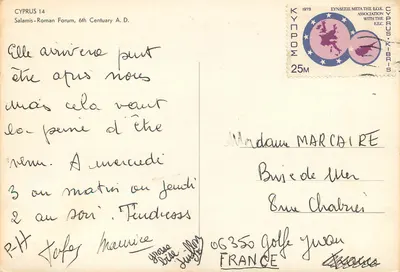 CYPRUS 14
Salamis-Roman Forum, 6th Centuary A. D.
Elle arrivera peut
être après nous
mais cela vaut
la peine d'être
venu. A mercredi
3 au matin ou jeudi
2 au soir. Tendresses
P-H
Maurice
1979
ΣΥΝΔΕΣΙΣ ΜΕΤΑ ΤΗΣ Ε.Ο.Κ.
ASSOCIATION
WITH THE E.E.C.
ΚΥΠΡΟΣ
CYPRUS-KIBRIS
25M
Madame MARCAIRE
Brise de Mer
8 rue Chabrier
06350 Golfe Juan
FRANCE